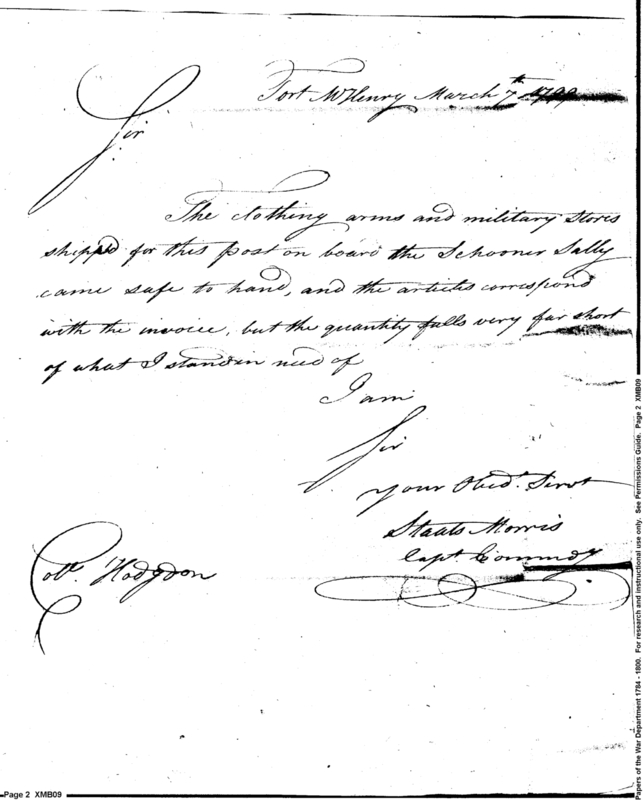 Fort McHenry March 7th 1799
Sir
The clothing arms and military stores
shipp'd for this post on board the Schooner Sally
came safe to hand, and the articles correspond
with the invoice, but the quantity falls very far short
of what I stand in need of
I am
Sir
your Obed. Servt
Staats Morris
Capt. Commdg
Coll. Hodgdon
Page 2 XMB09
Papers of the War Department 1784 - 1800. For research and instructional use only. See Permissions Guide. Page 2 XMB09